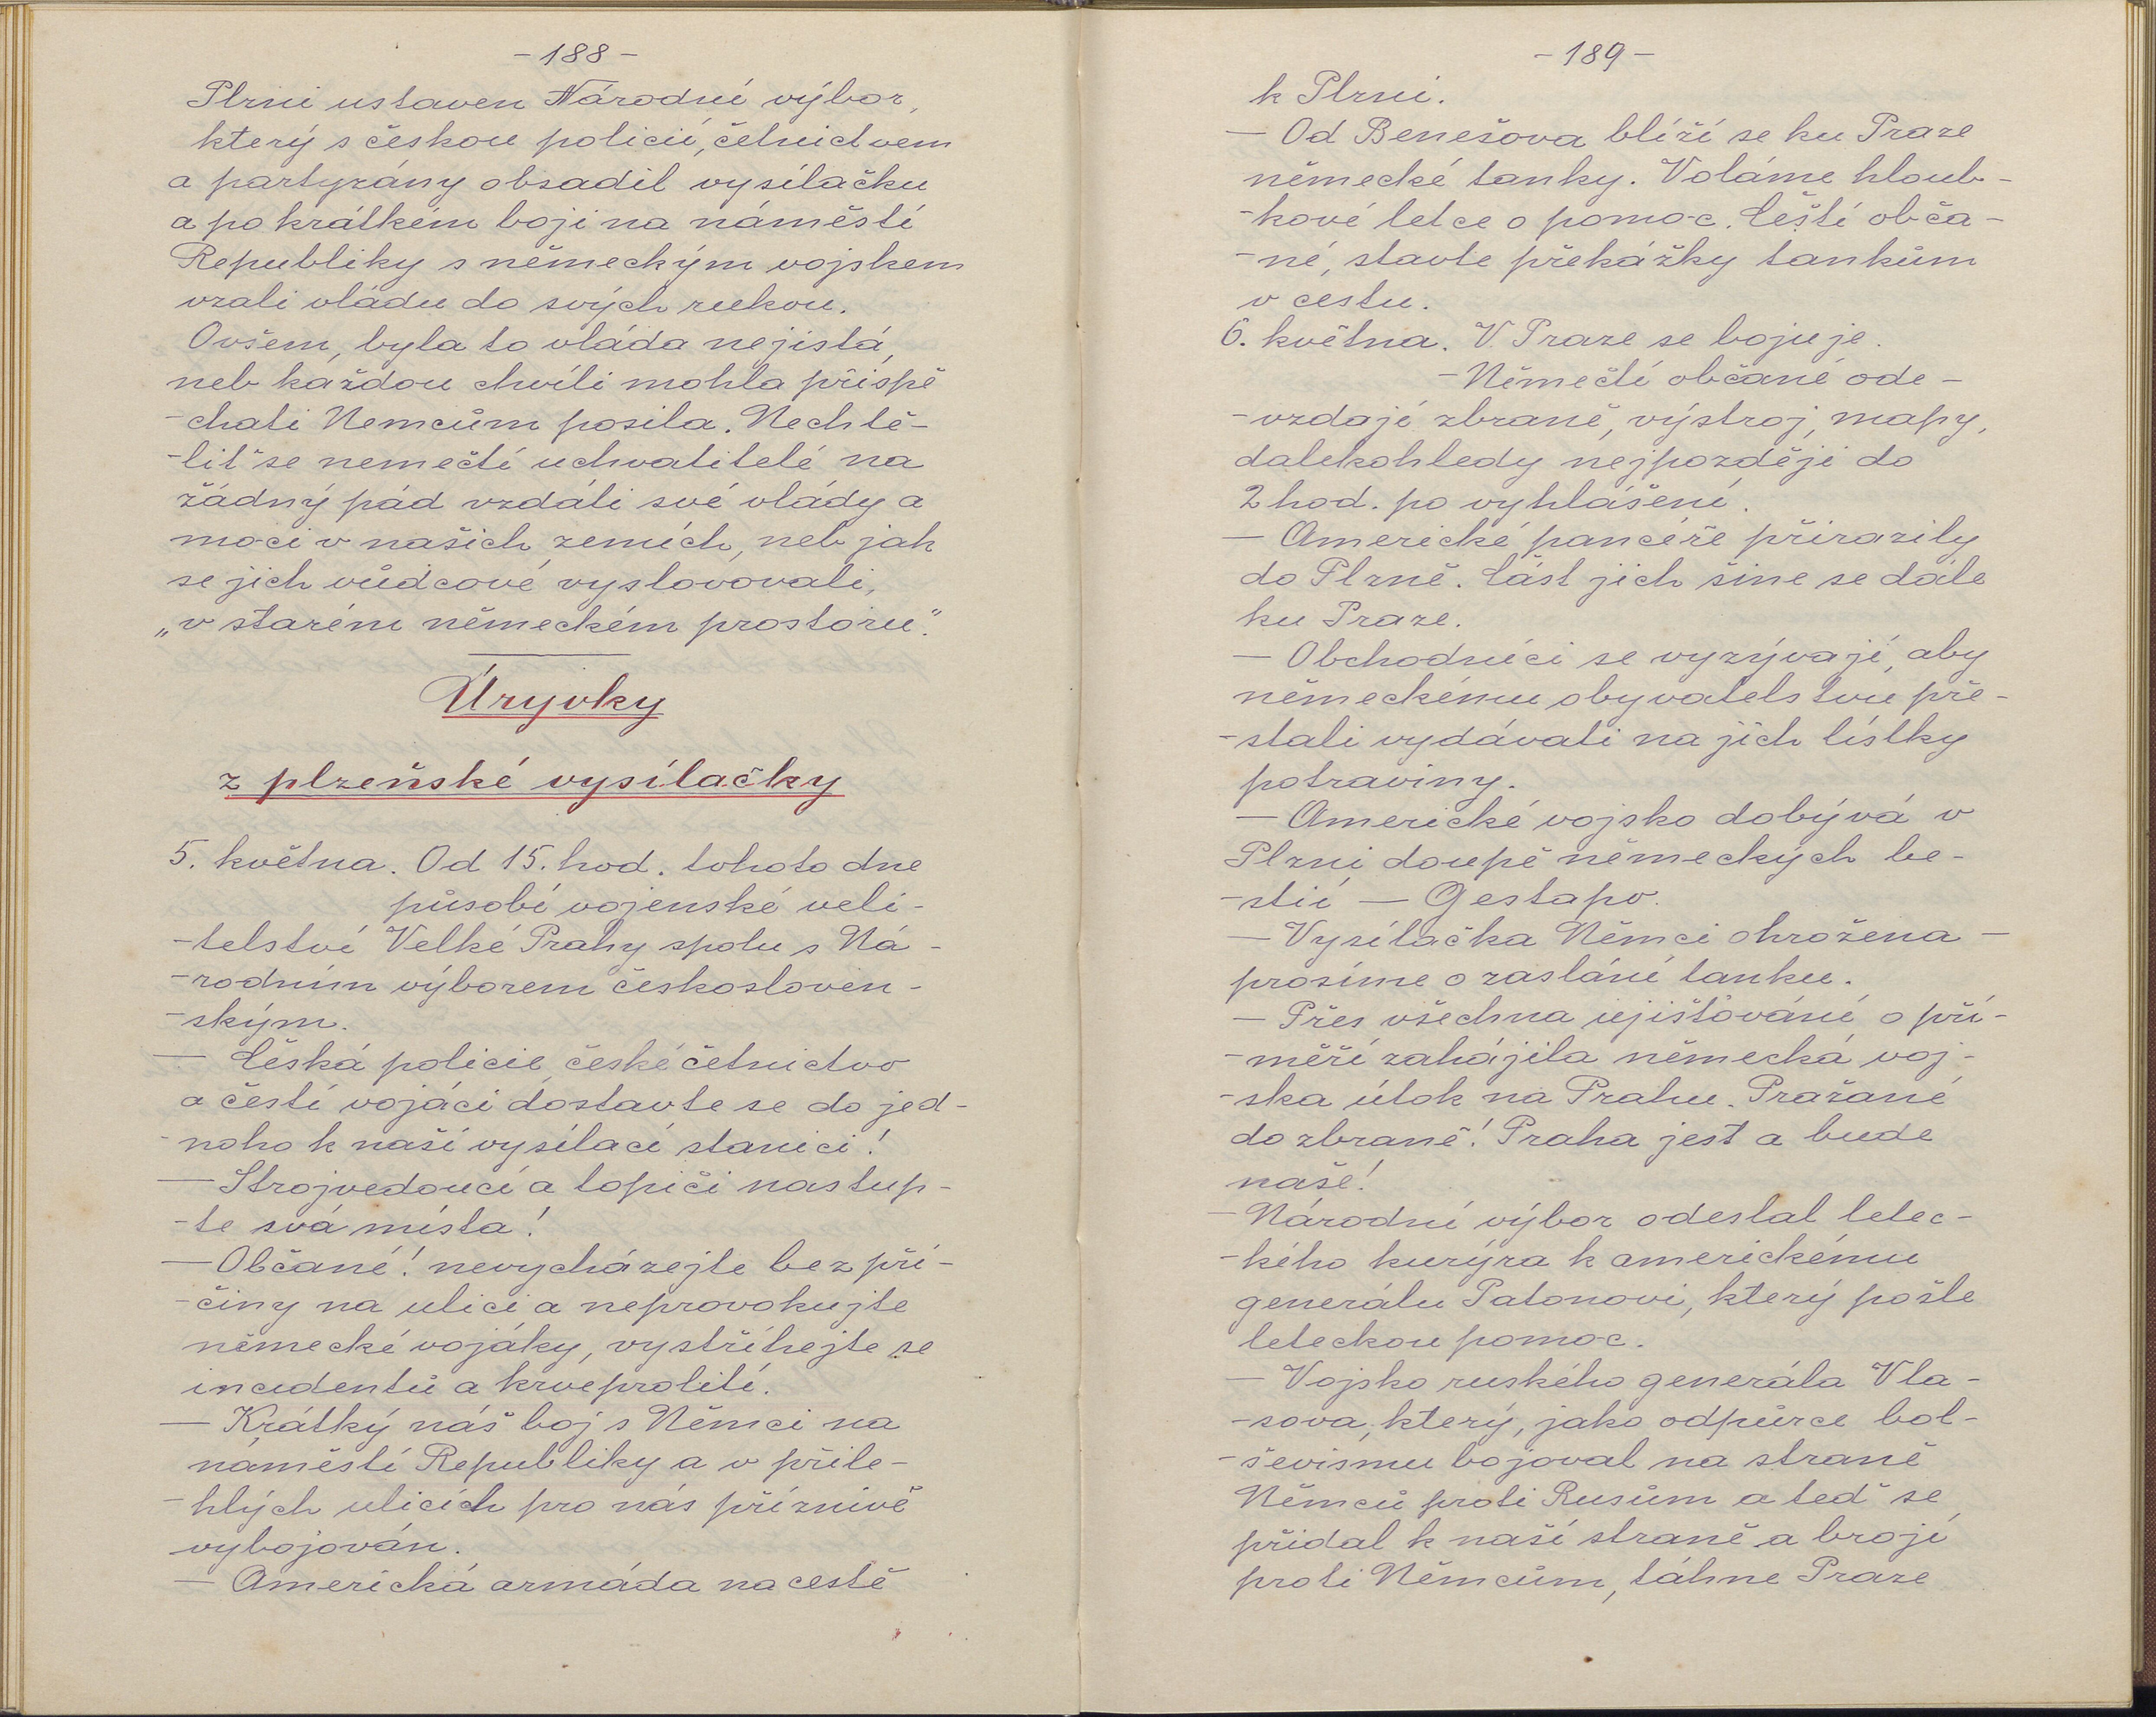 -188-
Plzni ustaven Národní výbor,
který s českou policií, četnictvem
a partyzány obsadil vysílačku
a po krátkém boji na náměstí
Republiky s německým vojskem
vzali vládu do svých rukou.
Ovšem, byla to vláda nejistá,
neb každou chvíli mohla přispě
-chati Nemcům posila. Nechtě-
-liť se nemečtí uchvatitelé na
žádný pád vzdáti své vlády a
moci v našich zemích, neb jak
se jich vůdcové vyslovovali,
„v starém německém prostoru".
Úryvky
z plzeňské vysílačky
5. května. Od 15. hod. tohoto dne
působí vojenské veli-
-telství Velké Prahy spolu s Ná-
-rodním výborem českosloven-
-ským.
— Česká policie, české četnictvo
a čestí vojáci dostavte se do jed-
-noho k naší vysílací stanici!
— Strojvedoucí a topiči nastup-
-te svá místa!
— Občané! nevycházejte bez pří-
-činy na ulici a neprovokujte
německé vojáky, vystříhejte se
incidentů a krveprolití.
— Krátký náš boj s Němci na
náměstí Republiky a v přile-
-hlých ulicích pro nás příznivě
vybojován.
— Americká armáda na cestě
-189-
k Plzni.
— Od Benešova blíží se ku Praze
německé tanky. Voláme hloub-
-kové letce o pomoc. Čeští obča-
-né, stavte překážky tankům
v cestu.
6. května. V Praze se bojuje.
- Němečtí občané ode-
-vzdají zbraně, výstroj, mapy,
dalekohledy nejpozději do
2 hod. po vyhlášení.
— Americké pancéře přirazily
do Plzně. Část jich šine se dále
ku Praze.
— Obchodníci se vyzývají, aby
německému obyvatelstvu pře-
-stali vydávati na jich lístky
potraviny.
— Americké vojsko dobývá v
Plzni doupě německých be-
-stií — Gestapo.
— Vysílačka Němci ohrožena —
prosíme o zaslání tanku.
— Přes všechna ujišťování o pří-
-měří zahájila německá voj-
-ska útok na Prahu. Pražané
do zbraně! Praha jest a bude
naše!
— Národní výbor odeslal letec-
-kého kurýra k americkému
generálu Patonovi, který pošle
leteckou pomoc.
— Vojsko ruského generála Vla-
-sova, který, jako odpůrce bol-
-ševismu bojoval na straně
Němců proti Rusům a teď se
přidal k naší straně a brojí
proti Němcům, táhne Praze